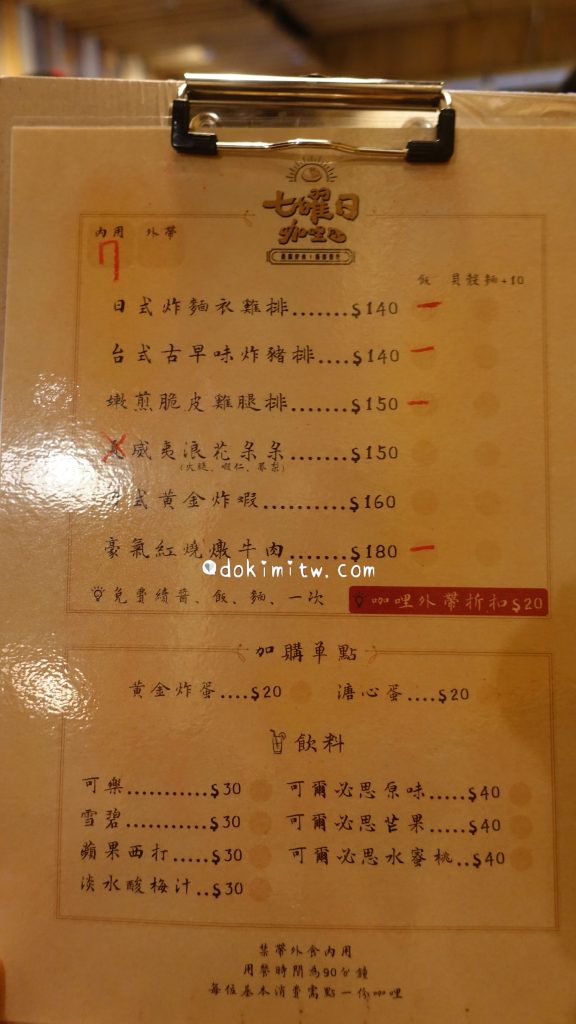 七曜日
咖哩
內用 外帶
7
飯 貝殼麵+10
日式炸麵衣雞排.......$140
台式古早味炸豬排....$140
嫩煎脆皮雞腿排.......$150
威夷浪花朵朵.......$150
(火腿、蝦仁、鳳梨)
式黃金炸蝦..........$160
豪氣紅燒燉牛肉.......$180
@dokimitw.com
免費續醬、飯、麵、一次
咖哩外帶折扣$20
加購單點
黃金炸蛋....$20 溏心蛋....$20
飲料
可樂...........$30 可爾必思原味.....$40
雪碧...........$30 可爾必思芒果.....$40
蘋果西打.....$30 可爾必思水蜜桃..$40
淡水酸梅汁..$30
禁帶外食內用
用餐時間為90分鐘
每位基本消費需點一份咖哩